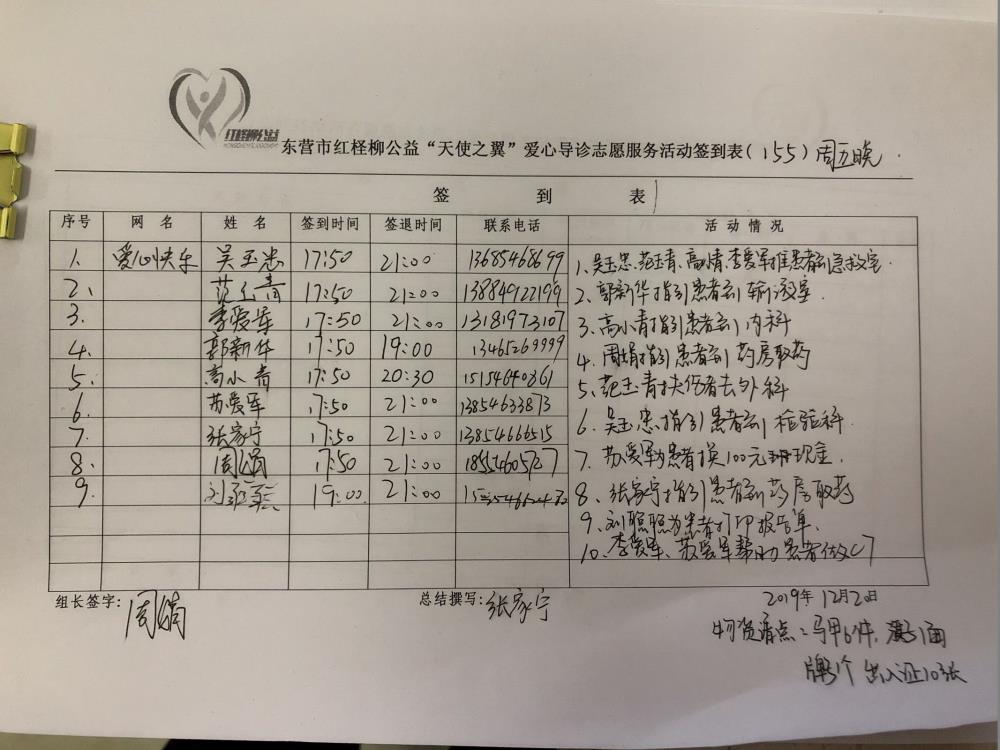 红柽柳公益
东营市红柽柳公益“天使之翼”爱心导诊志愿服务活动签到表(155)周五晚
签 到 表
序号 网 名 姓 名 签到时间 签退时间 联系电话 活 动 情 况
1. 爱心快乐 吴玉忠 17:50 21:00 13685468699
2、 范玉青 17:50 21:00 13884922199
3. 李爱军 17:50 21:00 13181973107
4. 郭新华 17:50 19:00 13465269999
5. 高小青 17:50 20:30 15154640361
6. 苏爱军 17:50 21:00 13854633873
7. 张家宁 17:50 21:00 13854666515
8. 周娟 17:50 21:00 18554605727
9. 19:00 21:00
1、吴玉忠、范玉青、高小青、李爱军推患者到急救室
2、郭新华指引患者到输液室.
3、高小青指引患者到内科
4、周娟指引患者到药房取药
5、范玉青扶伤者去外科
6、吴玉忠指引患者到检验科.
7、苏爱军为患者换100元现金.
8、张家宁指引患者到药房取药
9、刘聪聪为患者打印报告单.
10、李爱军、苏爱军帮助患者做CT
组长签字: 周娟 总结撰写: 张家宁 2019年12月20日
物资清点:马甲6件, 1面
牌1个 出入证10张